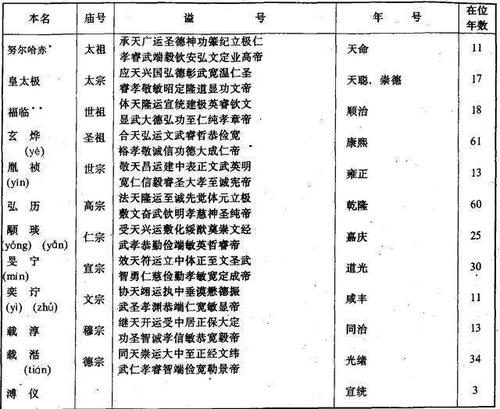 本名 庙号 谥号 年号 在位年数
努尔哈赤* 太祖 承天广运圣德神功肇纪立极仁孝睿武端毅钦安弘文定业高帝 天命 11
皇太极 太宗 应天兴国弘德彰武宽温仁圣睿孝敬敏昭定隆道显功文帝 天聪、崇德 17
福临** 世祖 体天隆运宣统建极英睿钦文显武大德弘功至仁纯孝章帝 顺治 18
玄烨(yè) 圣祖 合天弘运文武睿哲恭俭宽裕孝敬诚信功德大成仁帝 康熙 61
胤禛(yīn) 世宗 敬天昌运建中表正文武英明宽仁信毅睿圣大孝至诚宪帝 雍正 13
弘历 高宗 法天隆运至诚先觉体元立极敷文奋武钦明孝慈神圣纯帝 乾隆 60
颙琰(yóng)(yǎn) 仁宗 受天兴运敷化绥猷莫崇文经武孝恭勤俭端敏英哲睿帝 嘉庆 25
旻宁(mín) 宣宗 效天符运立中体正至文圣武智勇仁慈俭勤孝敏宽定成帝 道光 30
奕泞(yì)(zhǔ) 文宗 协天翊运执中垂谟懋德振武圣孝渊恭端仁宽敏显帝 咸丰 11
载淳 穆宗 继天开运受中居正保大定功圣智诚孝信敏恭宽毅帝 同治 13
载湉(tián) 德宗 同天崇运大中至正经文纬武仁孝睿智端俭宽勤景帝 光绪 34
溥仪 宣统 3